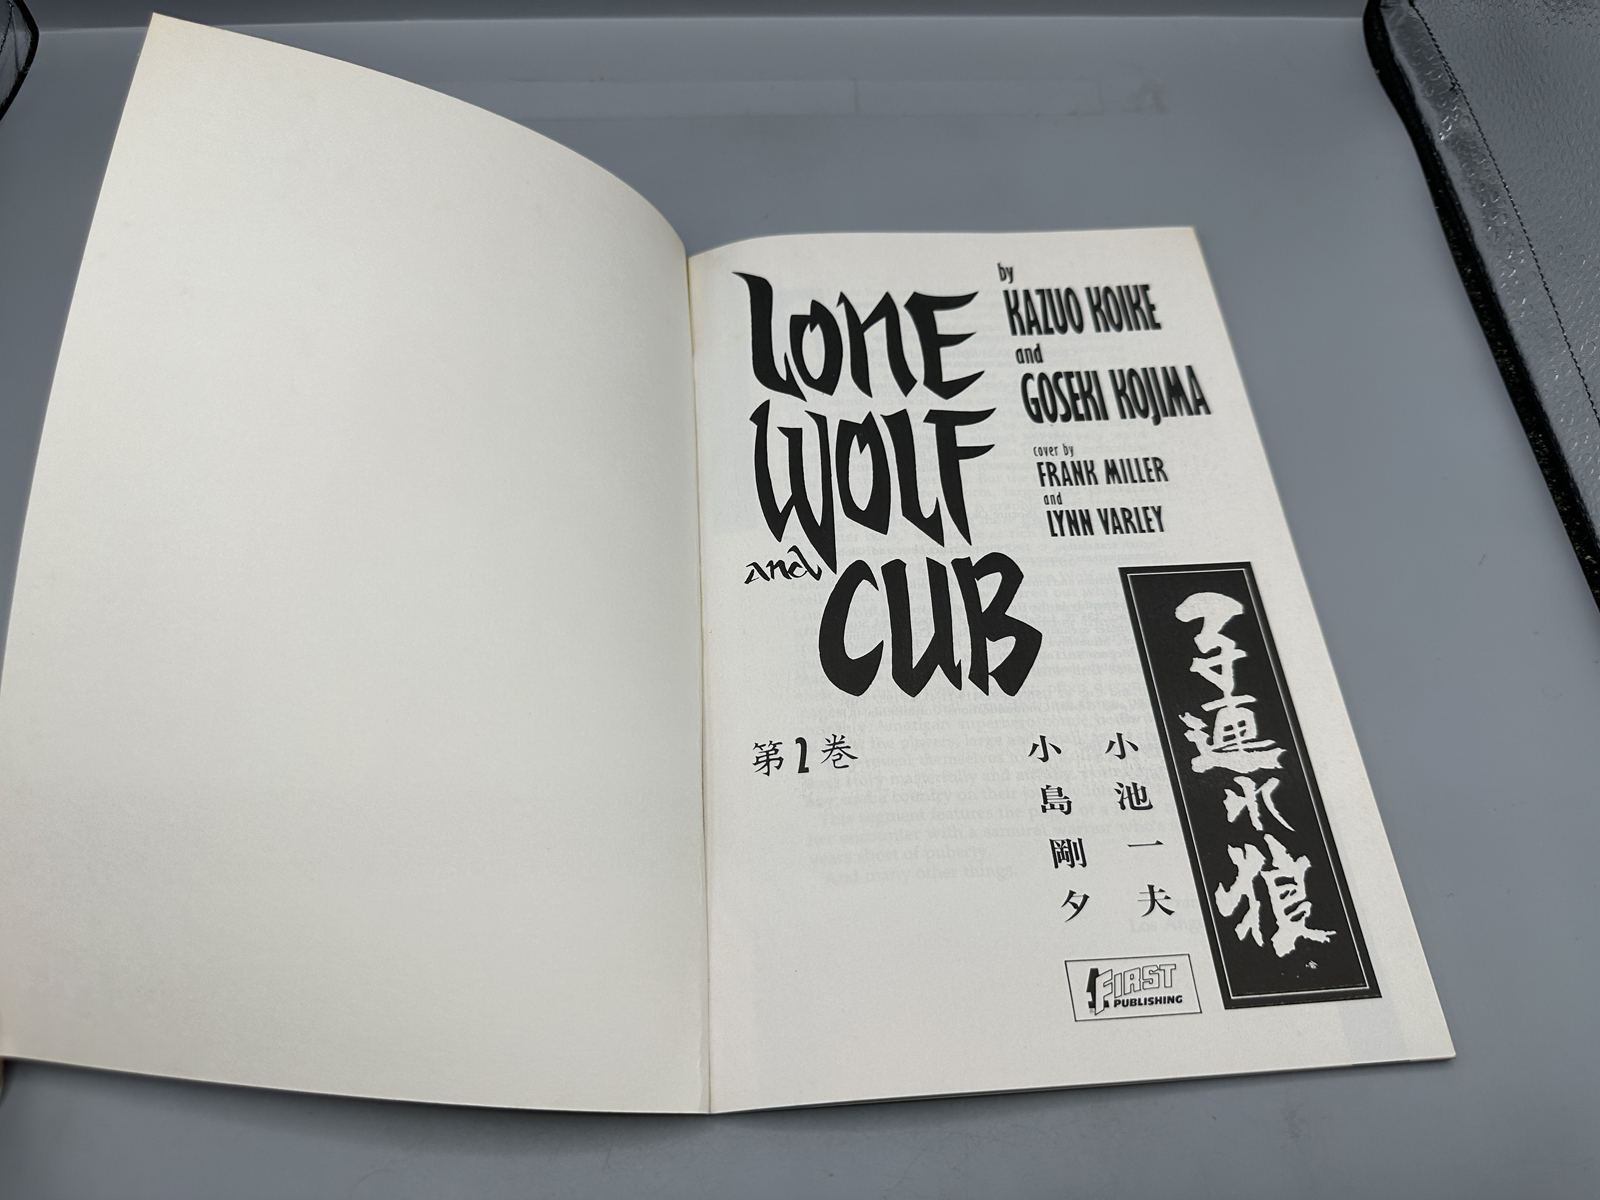 LONE
WOLF
and
CUB
by
KAZUO KOIKE
and
GOSEKI KOJIMA
cover by
FRANK MILLER
and
LYNN VARLEY
第2巻
小池一夫
小島剛夕
子連れ狼
FIRST
PUBLISHING